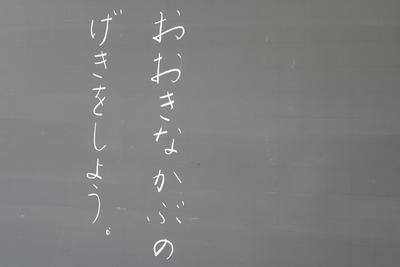 おおきなかぶの
げきをしよう。